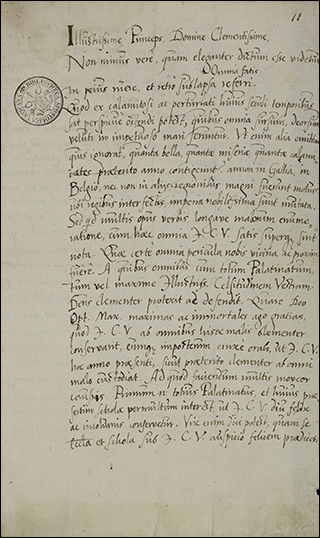 11
Illustrissime Princeps, Domine Clementissime,
Non minus vere, quam eleganter dictum esse videtur
Omnia fatis
In peius ruere, et retro sublapsa referri.
Quod ex calamitosi ac perturbati huius aevi temporibus
sat perspicue ostendi potest, quibus omnia sursum, deorsum
veluti in impetuoso mari feruntur. Ut enim alia omittam
quis ignorat, quanta bella, quantae miseriae quantae calami
tates praeterito anno contigerint, cum in Gallia, in
Belgio, nec non in alijs regionibus magni fuerint motus
ubi regibus interfectis imperia nobilissima sint mutata.
Sed quid multis opus verbis longave malorum enume-
ratione, cum haec omnia I. C. V. satis superq; sint
nota. Quae certe omnia pericula nobis vicina ac proxima
fuere. A quibus omnibus cum totum Palatinatum
tum vel maxime Illustriss. Celsitudinem Vestram
Deus clementer protexit ac defendit. Quare Deo
Opt. Max. maximas ac immortales ago gratias,
quod I. C. V. ab omnibus hisce malis clementer
conservarit, eumq; imposterum enixe orabo, ut I. C. V.
hoc anno praesenti, sicut praeterito clementer ab omni
malo custodiat. Ad quod faciendum multis moveor
causis. Primum n. totius Palatinatus, et huius prae
sertim scholae permultum interest, ut I. C. V. diu felix
ac incolumis conservetur. Vix enim dici potest, quam se
Eccla et schola sub I. C. V. auspicio felicem praedicet.